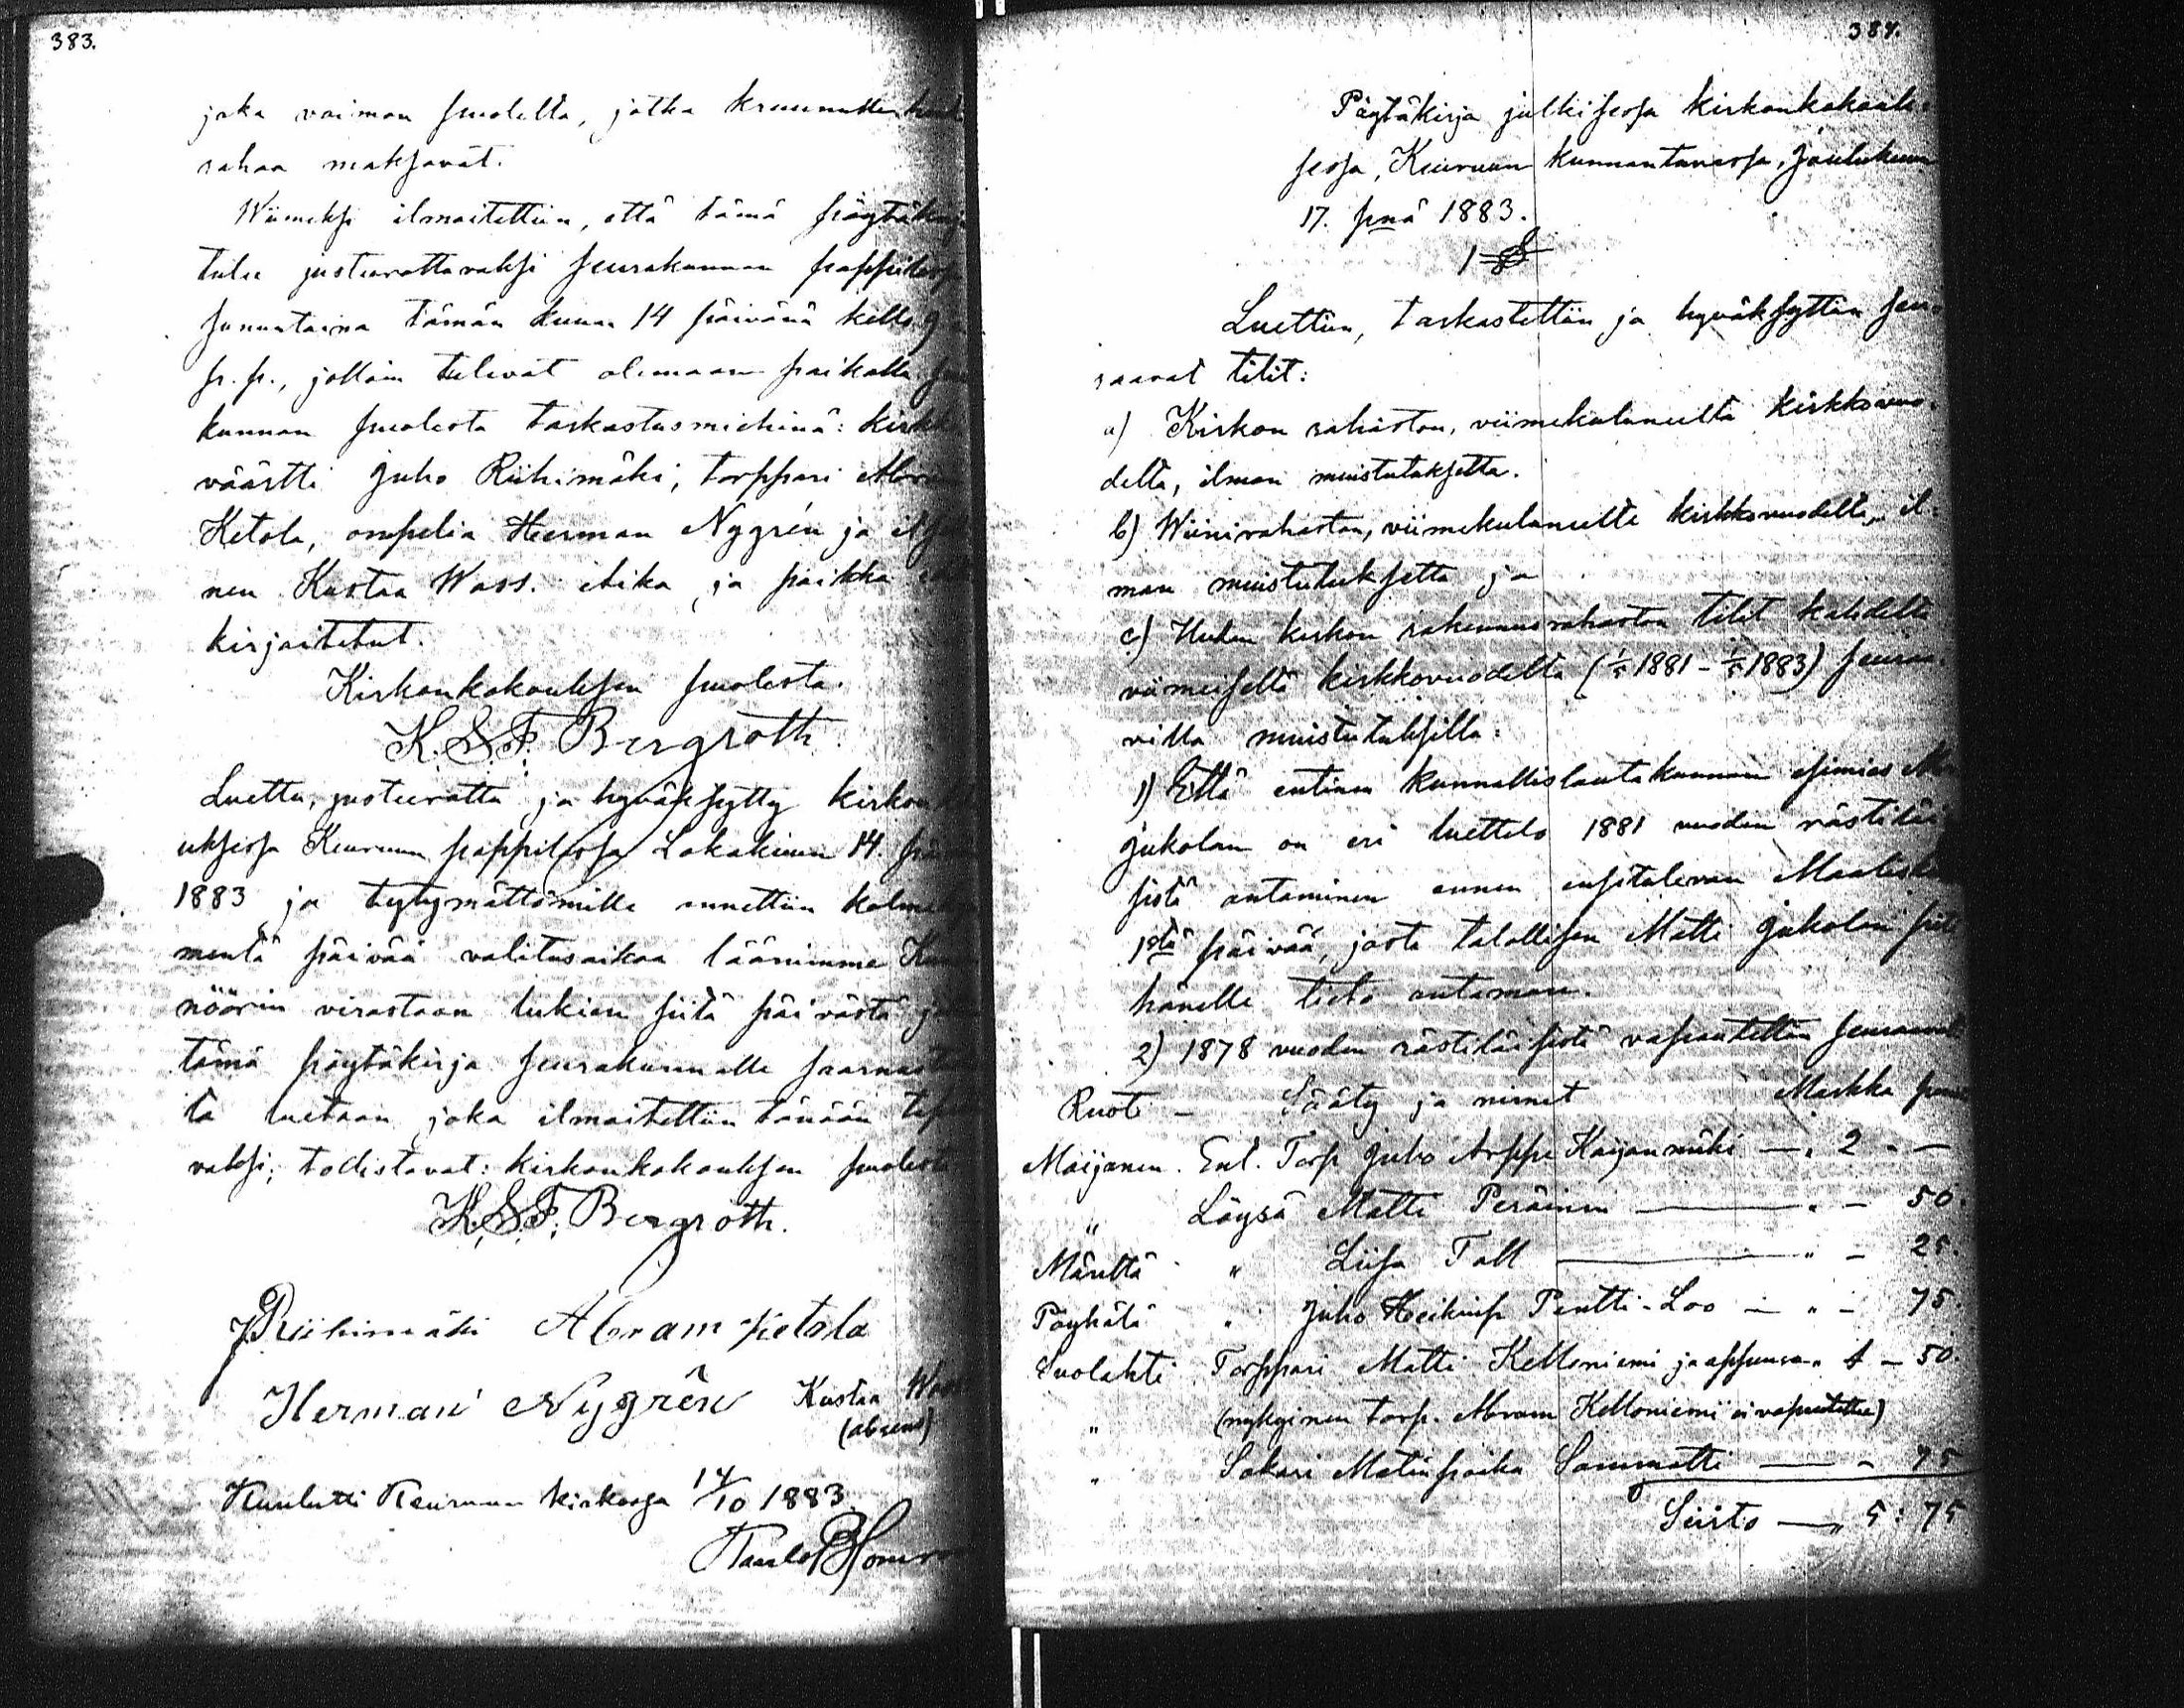 383.
joka vaimon puolelta, jotka kruununkin
rahaa maksavat.
Wiimeksi ilmoitettiin, että tämä pöytäkirja
tulee justeerattavaksi seurakunnan pappilassa
sunnuntaina tämän kuun 14 päivänä kello 9
p. p., jolloin tulevat olemaan paikalla
kunnan puolesta tarkastusmiehinä: kirkk
väärtti Juho Riihimäki, torppari Abram
Ketola, ompelia Herman Nygrén ja
nen Kustaa Wass. Aika ja paikka
kirjoitetut.
Kirkonkokouksen puolesta.
K. S. F. Bergroth.
Luettu, justeerattu ja hyväksytty kirkonko
uksessa Keuruun pappilassa Lokakuun 14. pä
1883 ja tytymättömille annettiin kolme
mentä päivää valitusaikaa läänimme Ku
nöörin virastoon lukien siitä päivästä
tämä pöytäkirja seurakunnalle saarnast
ta luetaan joka ilmoitettiin tänään tap
vaksi; todistavat: kirkonkokouksen puolesta
K. S. F. Bergroth.
J Riihimäki Abram Ketola
Herman Nygrén Kustaa Wass
(absens)
Kuulutti Keuruun kirkossa 14/10 1883.
384.
Pöytäkirja julkisessa kirkonkokouk-
sessa, Keuruun kunnantuvassa, Joulukuun
17. pnä 1883.
1 §
Luettiin, tarkastettiin ja hyväksyttiin seu-
raavat tilit:
a) Kirkon rahaston, viimekuluneelta kirkkovuo-
delta, ilman muistutuksetta.
b) Wiinirahaston, viimekuluneelta kirkkovuodelta, il-
man muistutuksetta ja
c) Uuden kirkon rakennusrahaston tilit kahdelta
viimeiseltä kirkkovuodelta (1/5 1881 - 1/5 1883) seuraa-
villa muistutuksilla:
1) Että entinen kunnallislautakunnan esimies
Jukolan on eri luettelo 1881 vuoden rästiläi
sistä antaminen ennen ensitulevan Maalisku
1stä päivää, josta talollisen Matti Jukolan piti
hänelle tieto antaman.
2) 1878 vuoden rästiläisistä vapautettiin seuraavat
Ruoti - Sääty ja nimet Markka penni
Maijanen. Ent. Torp Juho Arppe Kaijanmäki — „ 2 . —
„ Löysä Matti Peräinen — „ - 50.
Mänttä „ Liisa Tall — „ - 25.
Pöyhölä „ Juho Heikinp Pentti-Loo — „ - 75.
Suolahti Torppari Matti Kelloniemi ja appensa „ 1 - 50.
„ (nykyinen torp. Abram Kelloniemi ei vapautettu)
„ Sakari Matinpoika Sammatti — - 75
Siirto — „ 5: 75